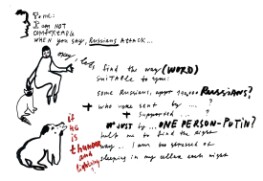 I am NOT
COMFORTABLE
WHEN you say, RUSSIANS ATTACK...
okay, let's find the way (WORD)
SUITABLE to you:
some Russians, RUSSIANS?
+ who were sent by ... ?
+ supported ... ?
just by ... ONE PERSON-PUTIN?
if
he is
thunder
and
lightning?
to find the right
way .. I am too stressed of
sleeping in my each night